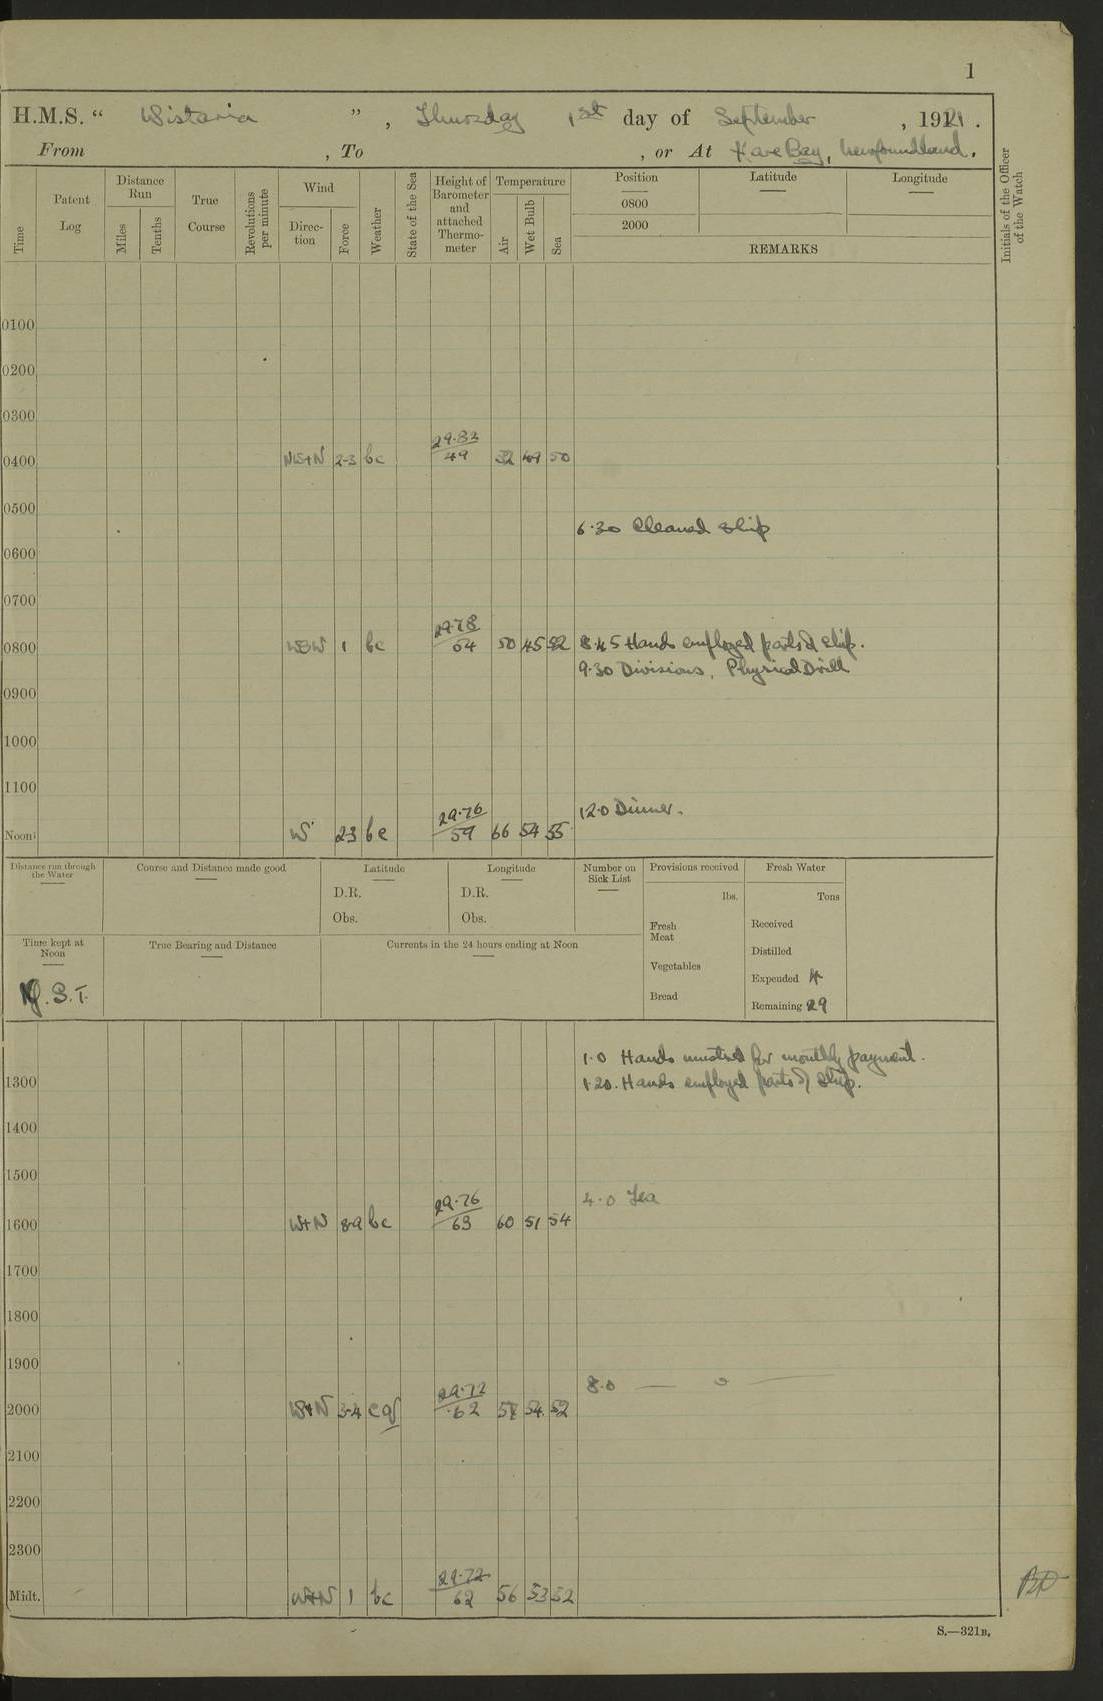 1
H.M.S. “ Wistaria ” , Thursday 1st day of September , 1921 .
From , To , or At Hare Bay, Newfoundland.
Time
Patent Log
Distance Run
Miles
Tenths
True Course
Revolutions per minute
Wind
Direction
Force
Weather
State of the Sea
Height of Barometer and attached Thermometer
Temperature
Air
Wet Bulb
Sea
Position
Latitude
Longitude
0800
2000
REMARKS
Initials of the Officer of the Watch
0100
0200
0300
0400 2-3 bc 29.83 / 49 52 49 50
0500
6.30 Cleaned Ship
0600
0700
0800 WSW 1 bc 29.78 / 54 50 45 52 8.45 Hands employed parts of ship.
9.30 Divisions, Physical Drill
0900
1000
1100
12.0 Dinner.
Noon W 2-3 bc 29.76 / 59 66 54 55
Distance run through the Water
Course and Distance made good
Latitude
D.R.
Obs.
Longitude
D.R.
Obs.
Number on Sick List
Provisions received
lbs.
Fresh Meat
Vegetables
Bread
Fresh Water
Tons
Received
Distilled
Expended 4
Remaining 29
Time kept at Noon
N.S.T.
True Bearing and Distance
Currents in the 24 hours ending at Noon
1.0 Hands mustered for monthly payment.
1300 1.20. Hands employed parts of ship.
1400
1500
4.0 Tea
1600 W+N bc 29.76 / 63 60 51 54
1700
1800
1900
8.0 — o —
2000 W+N 3-4 cq 29.72 / 62 54 52
2100
2200
2300
Midt. W+N 1 bc 29.72 / 62 56 53 52
S.—321B.